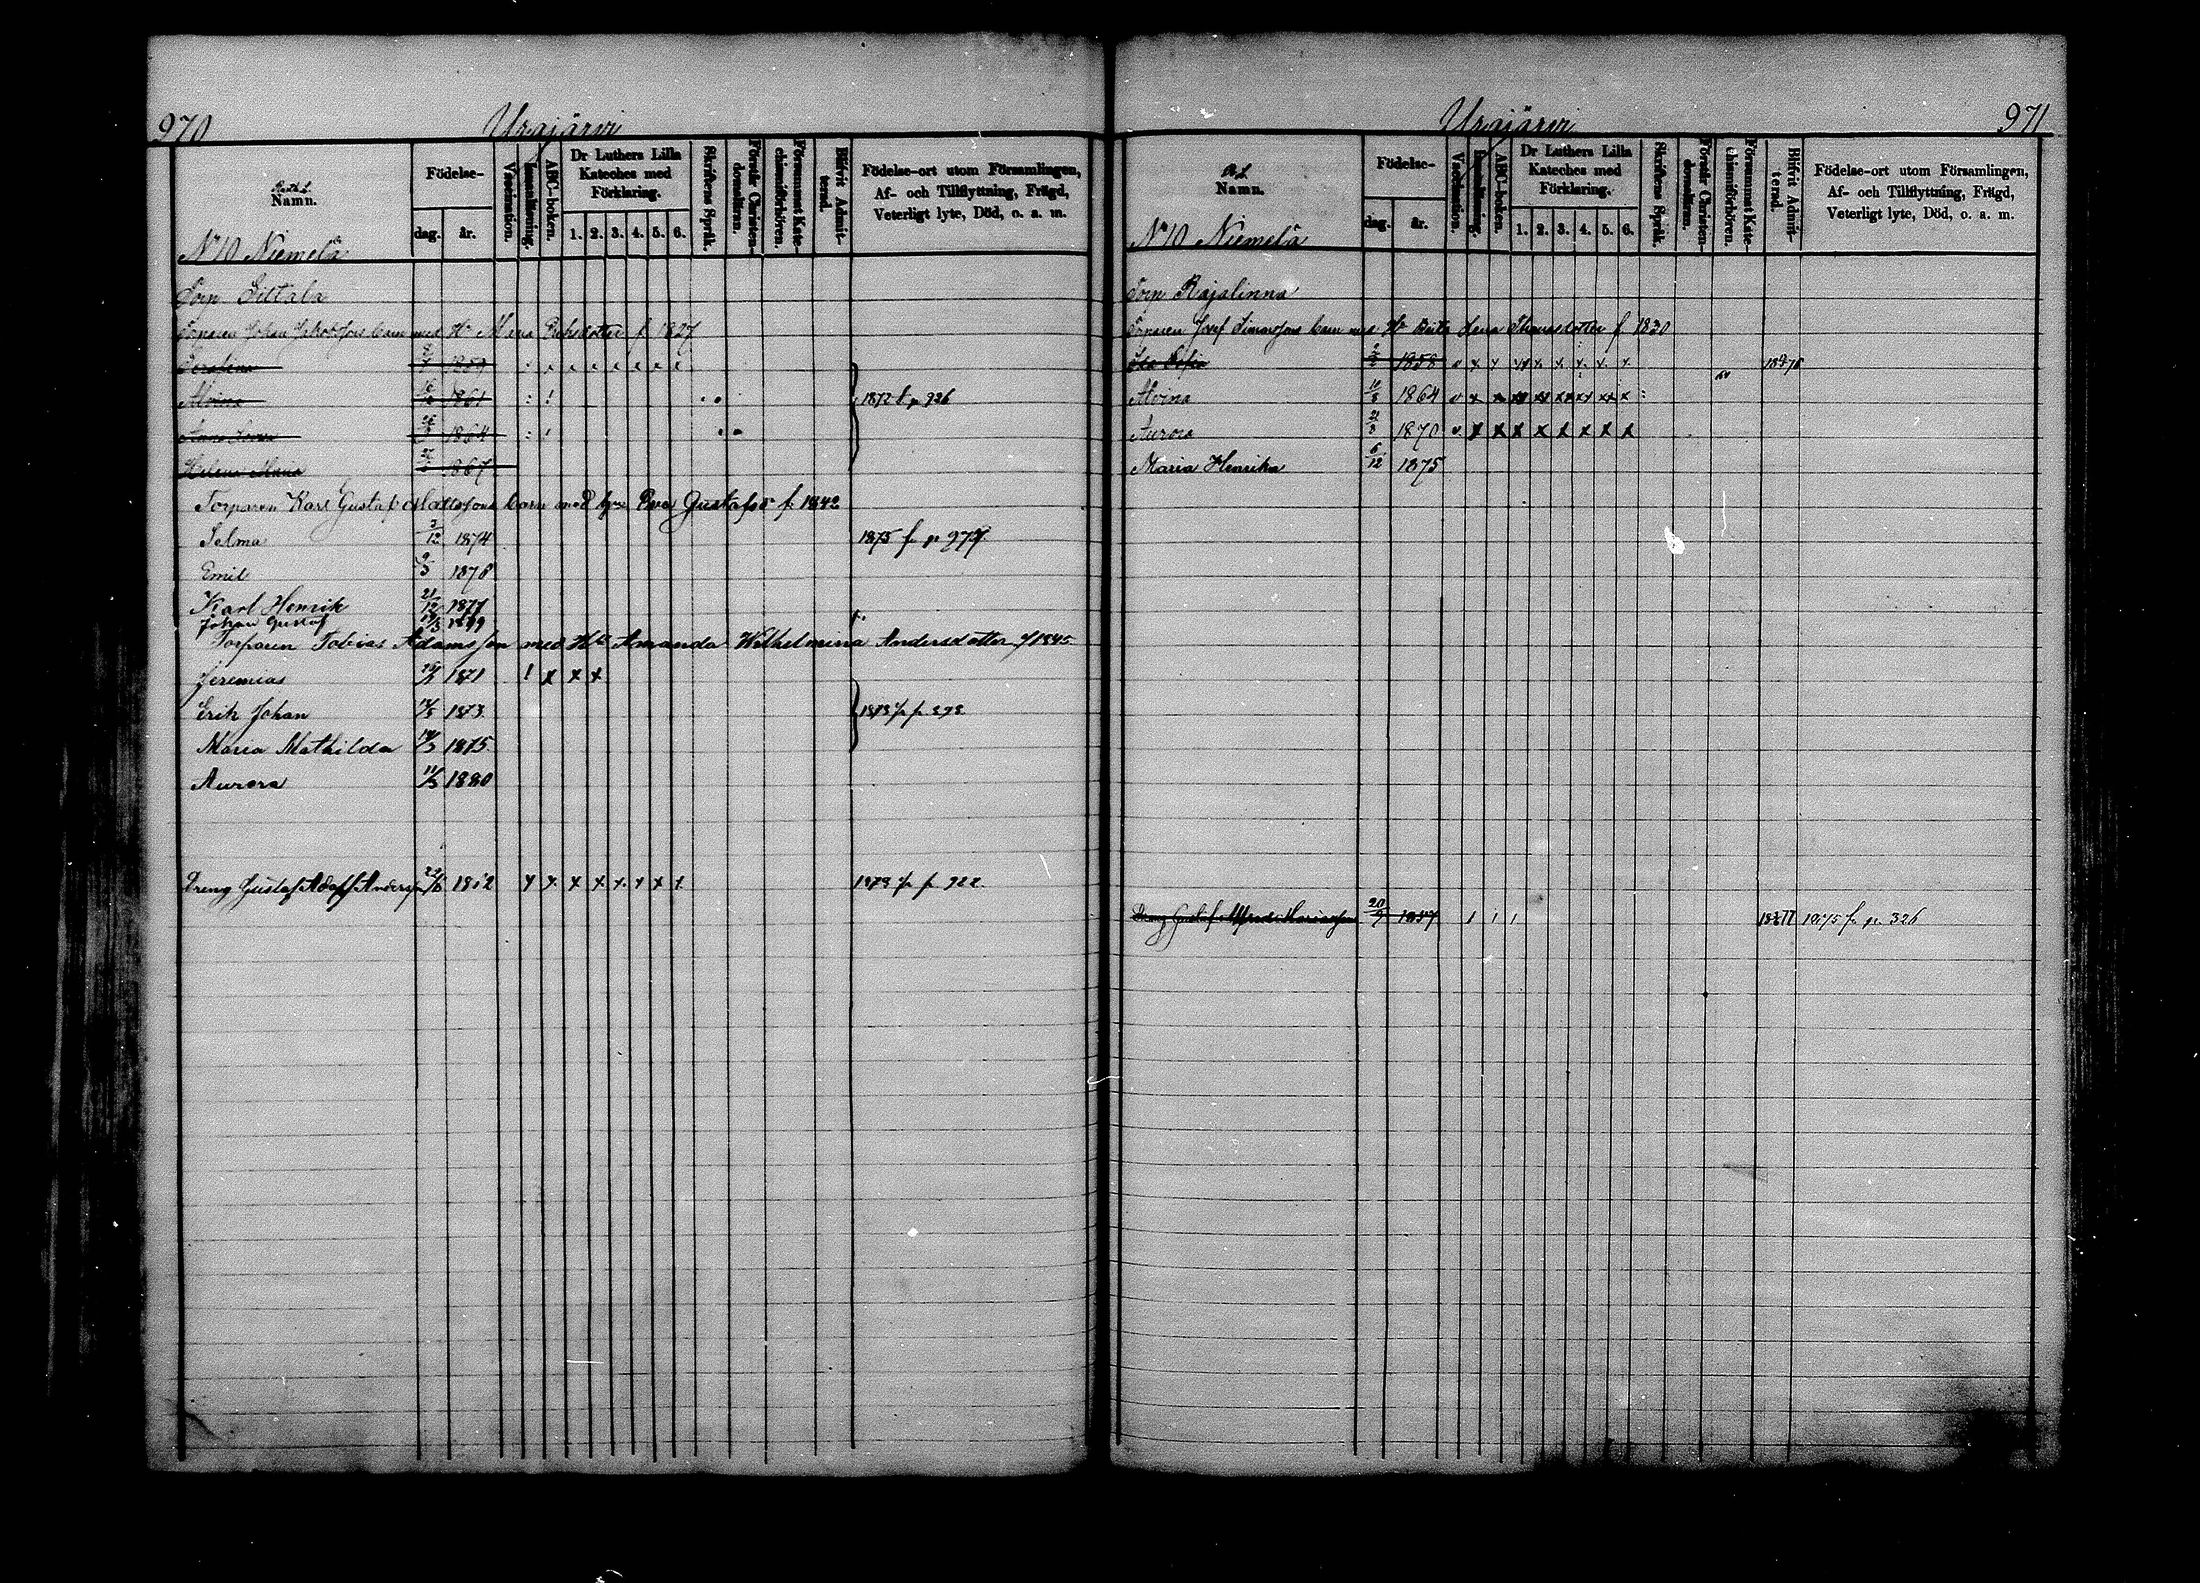 970 Urajärvi
Namn.
Födelse-
dag. år.
Vaccination.
Innanläsning.
ABC-boken.
Dr Luthers Lilla Kateches med Förklaring.
1. 2. 3. 4. 5. 6.
Skriftens Språk.
Förstår Christendomsläran.
Försummat Katechismiförhören.
Blifvit Admitterad.
Födelse-ort utom Församlingen,
Af- och Tillflyttning, Frägd,
Veterligt lyte, Död, o. a. m.
No 10 Niemelä
Torp
Torparen Johan Jakobssons barn med Hu Maria f 1827
1859
Alvina 1861 1872 p 936
1864
Helena Maria 27 1867
Torparen Karl Gustaf Mattssons barn med hu Eva Gustafsd f. 1842
Selma 3/12 1874 1875 f. p.
Emil 9/3 1876
Karl Henrik 21/12 1877
Johan Gustaf 1879
Torparen Tobias Adamsson med Hu Amanda Wilhelmina Andersdotter f 1845
Jeremias 1871 ! x x x
Erik Johan 1873
Maria Mathilda 1875
Aurora 11/5 1880
Dreng Gustaf Adolf Andersson 22/6 x x x x x x x x 1879 f. p 922.
Urajärvi 971
Namn.
Födelse-
dag. år.
Vaccination.
Innanläsning.
ABC-boken.
Dr Luthers Lilla Kateches med Förklaring.
1. 2. 3. 4. 5. 6.
Skriftens Språk.
Förstår Christendomsläran.
Försummat Katechismiförhören.
Blifvit Admitterad.
Födelse-ort utom Församlingen,
Af- och Tillflyttning, Frägd,
Veterligt lyte, Död, o. a. m.
No 10 Niemelä
Torp Rajalinna
Torparen Josef Simonssons barn med Hu Brita Lena Thomasdotter f 1830
Ida Sofia 1858
Alvina 1864
Aurora 21/3 1870
Maria Henrika 6/12 1875
Dreng Gustaf Alfred 20/7 1857 1877 1875 f. p. 326